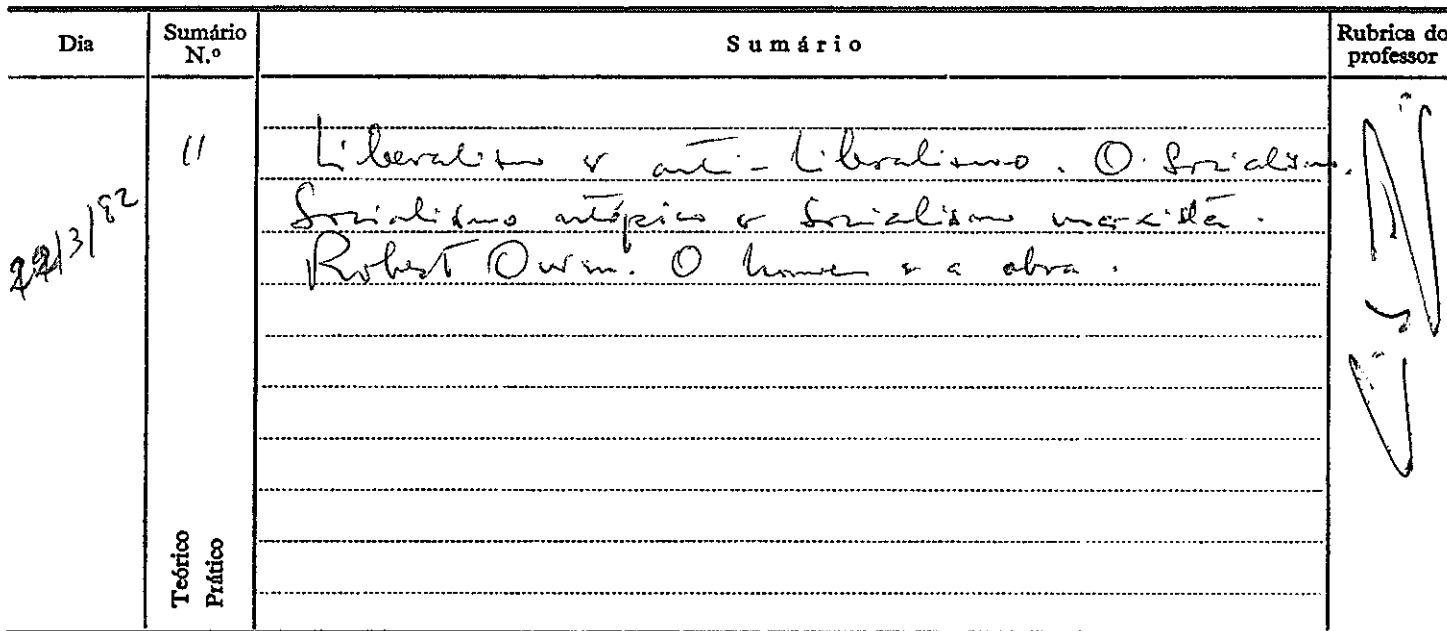 Dia
Sumário N.º
Sumário
Rubrica do professor
22/3/82
11
Liberalismo e anti-Liberalismo. O Socialismo.
Socialismo utópico e Socialismo marxista.
Robert Owen. O homem e a obra.
Teórico
Prático